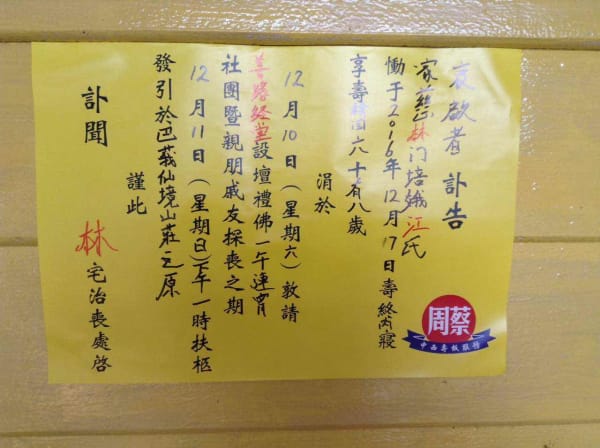 哀啟者訃告
家慈林门培娥江氏
慟于2016年12月17日壽終內寢
享壽積閏六十有八歲
涓於
12月10日（星期六）敦請
善路经堂設壇禮佛一午連宵
社團暨親朋戚友探喪之期
12月11日（星期日）下午一時扶柩
發引於巴莪仙境山莊之原
謹此
訃聞
林宅治喪處啓
周蔡
中西壽板服務